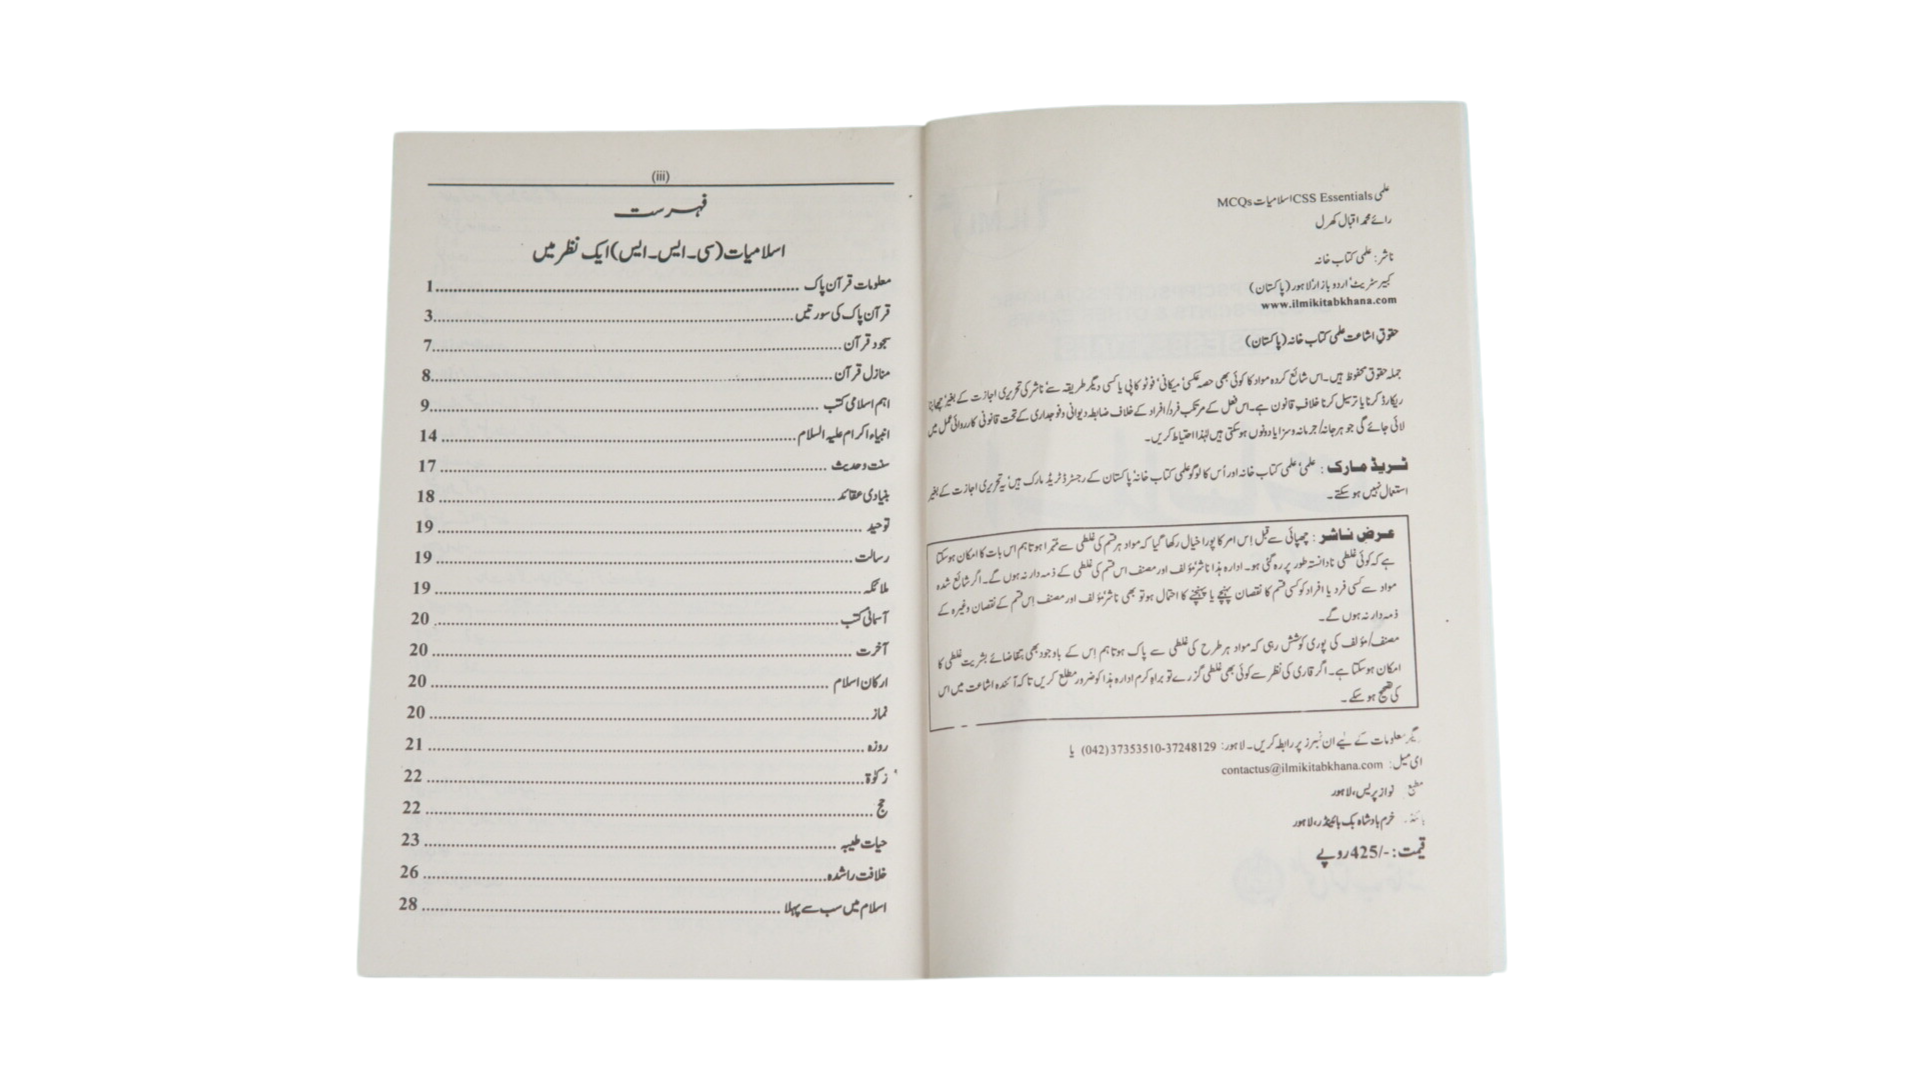 علمی CSS Essentials اسلامیات MCQs
رائے محمد اقبال کھرل
ناشر: علمی کتاب خانہ
کبیر سٹریٹ، اردو بازار، لاہور (پاکستان)
www.ilmikitabkhana.com
حقوقِ اشاعت علمی کتاب خانہ (پاکستان)
جملہ حقوق محفوظ ہیں۔ اس شائع کردہ مواد کا کوئی بھی حصہ عکسی، میکانی، فوٹو کاپی یا کسی دیگر طریقہ سے ناشر کی تحریری اجازت کے بغیر چھاپنا
ریکارڈ کرنا یا ترسیل کرنا خلافِ قانون ہے۔ اس فعل کے مرتکب فرد/افراد کے خلاف ضابطہ دیوانی و فوجداری کے تحت قانونی کارروائی عمل میں
لائی جائے گی جو ہرجانہ/جرمانہ و سزا یا دونوں ہو سکتی ہیں لہٰذا احتیاط کریں۔
ٹریڈ مارک : علمی، علمی کتاب خانہ اور اُس کا لوگو علمی کتاب خانہ، پاکستان کے رجسٹرڈ ٹریڈ مارک ہیں، یہ تحریری اجازت کے بغیر
استعمال نہیں ہو سکتے۔
عرضِ ناشر : چھپائی سے قبل اِس امر کا پورا خیال رکھا گیا کہ مواد ہر قسم کی غلطی سے مبرا ہو تاہم اس بات کا امکان ہو سکتا
ہے کہ کوئی غلطی نادانستہ طور پر رہ گئی ہو۔ ادارہ ہذا، ناشر، مؤلف اور مصنف اس قسم کی غلطی کے ذمہ دار نہ ہوں گے۔ اگر شائع شدہ
مواد سے کسی فرد یا افراد کو کسی قسم کا نقصان پہنچے یا پہنچنے کا احتمال ہو تو بھی ناشر، مؤلف اور مصنف اِس قسم کے نقصان وغیرہ کے
ذمہ دار نہ ہوں گے۔
مصنف/مؤلف کی پوری کوشش رہی کہ مواد ہر طرح کی غلطی سے پاک ہو تاہم اِس کے باوجود بھی بتقاضائے بشریت غلطی کا
امکان ہو سکتا ہے۔ اگر قاری کی نظر سے کوئی بھی غلطی گزرے تو براہِ کرم ادارہ ہذا کو ضرور مطلع کریں تاکہ آئندہ اشاعت میں اس
کی تصحیح ہو سکے۔
دیگر معلومات کے لیے ان نمبرز پر رابطہ کریں۔ لاہور: 37248129-37353510 (042) یا
ای میل: contactus@ilmikitabkhana.com
مطبع نواز پریس، لاہور
خرم بادشاہ بک بائینڈرر، لاہور
قیمت: -/425 روپے
(iii)
فہرست
اسلامیات (سی۔ایس۔ایس) ایک نظر میں
معلومات قرآن پاک ........ 1
قرآن پاک کی سورتیں ........ 3
سجود قرآن ........ 7
منازل قرآن ........ 8
اہم اسلامی کتب ........ 9
انبیاء اکرام علیہ السلام ........ 14
سنت و حدیث ........ 17
بنیادی عقائد ........ 18
توحید ........ 19
رسالت ........ 19
ملائکہ ........ 19
آسمانی کتب ........ 20
آخرت ........ 20
ارکان اسلام ........ 20
نماز ........ 20
روزہ ........ 21
زکوٰۃ ........ 22
حج ........ 22
حیات طیبہ ........ 23
خلافت راشدہ ........ 26
اسلام میں سب سے پہلا ........ 28